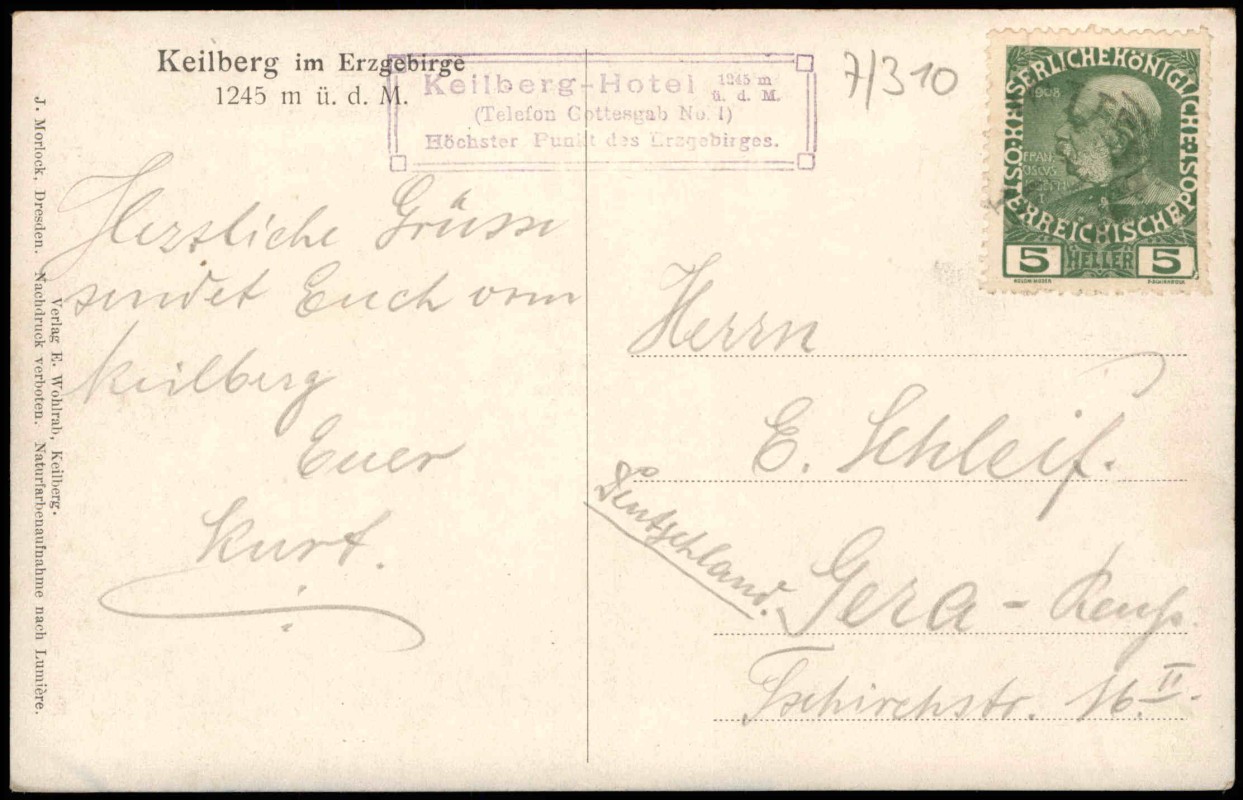 Keilberg im Erzgebirge
1245 m ü. d. M.
Keilberg-Hotel 1245 m ü. d. M.
(Telefon Gottesgab No. 1)
Höchster Punkt des Erzgebirges.
7/310
K.K. ÖSTERREICHISCHE POST KAISERLICHE KÖNIGLICHE
1908
FRAN
CISCVS
5 HELLER 5
Herzliche Grüsse
sendet Euch vom
Keilberg
Euer
Kurt.
Herrn
E. Schleif.
Deutschland.
Gera - Reuß.
Tschirchstr. 16.II.
Verlag E. Wohlrab, Keilberg.
J. Morlock, Dresden. Nachdruck verboten. Naturfarbenaufnahme nach Lumière.